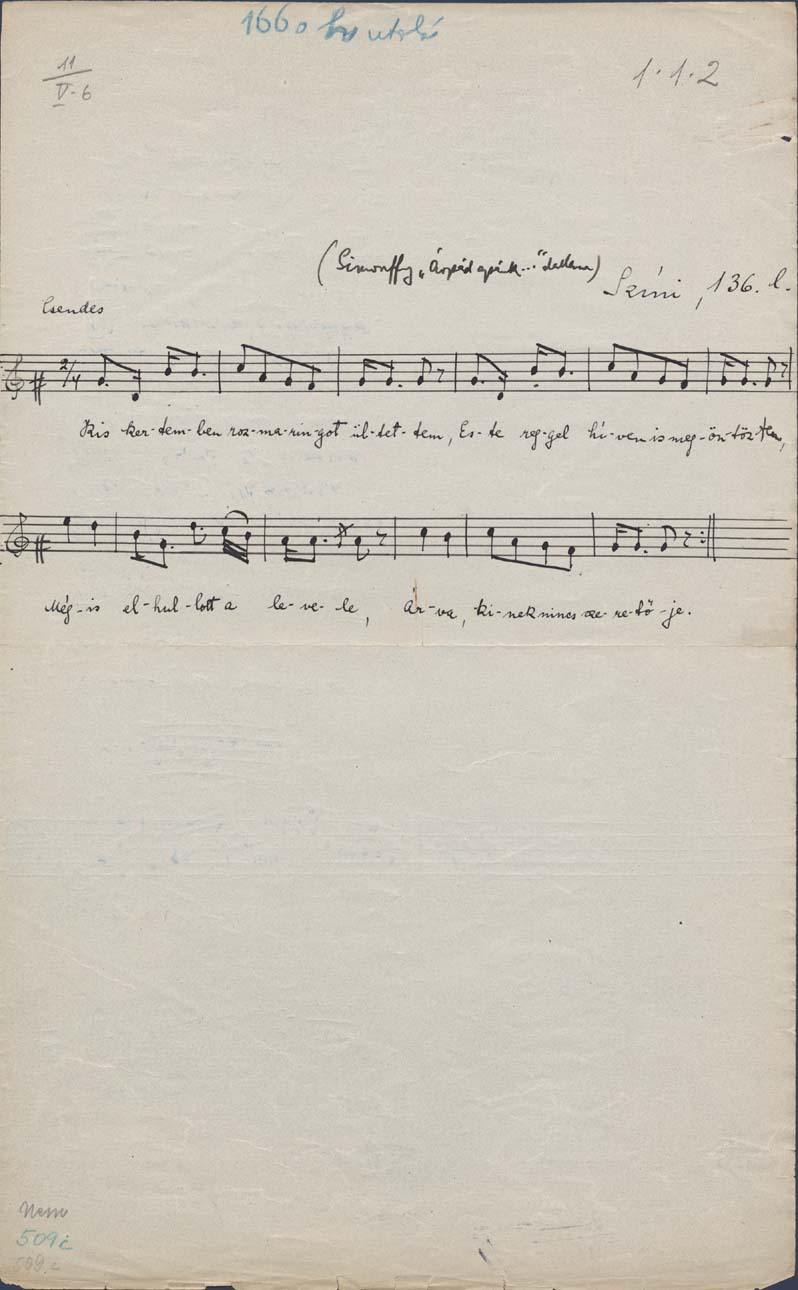 1660 utolsó
11
V-6
1·1·2
(Simonffy „Árpád apánk..." dallama)
Színi, 136. l.
Csendes
2/4
Kis ker-tem-ben roz-ma-rin-got ül-tet-tem, Es-te reg-gel hí-ven is meg-ön-töz-tem,
Még-is el-hul-lott a le-ve-le, Ár-va, ki-nek nincs sze-re-tő-je.
Nem
509c
509.c